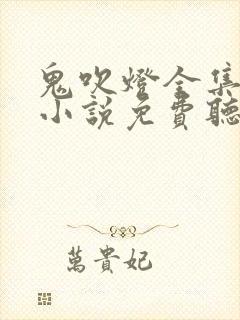 鬼吹燈全集
小說免費聽
萬貴妃